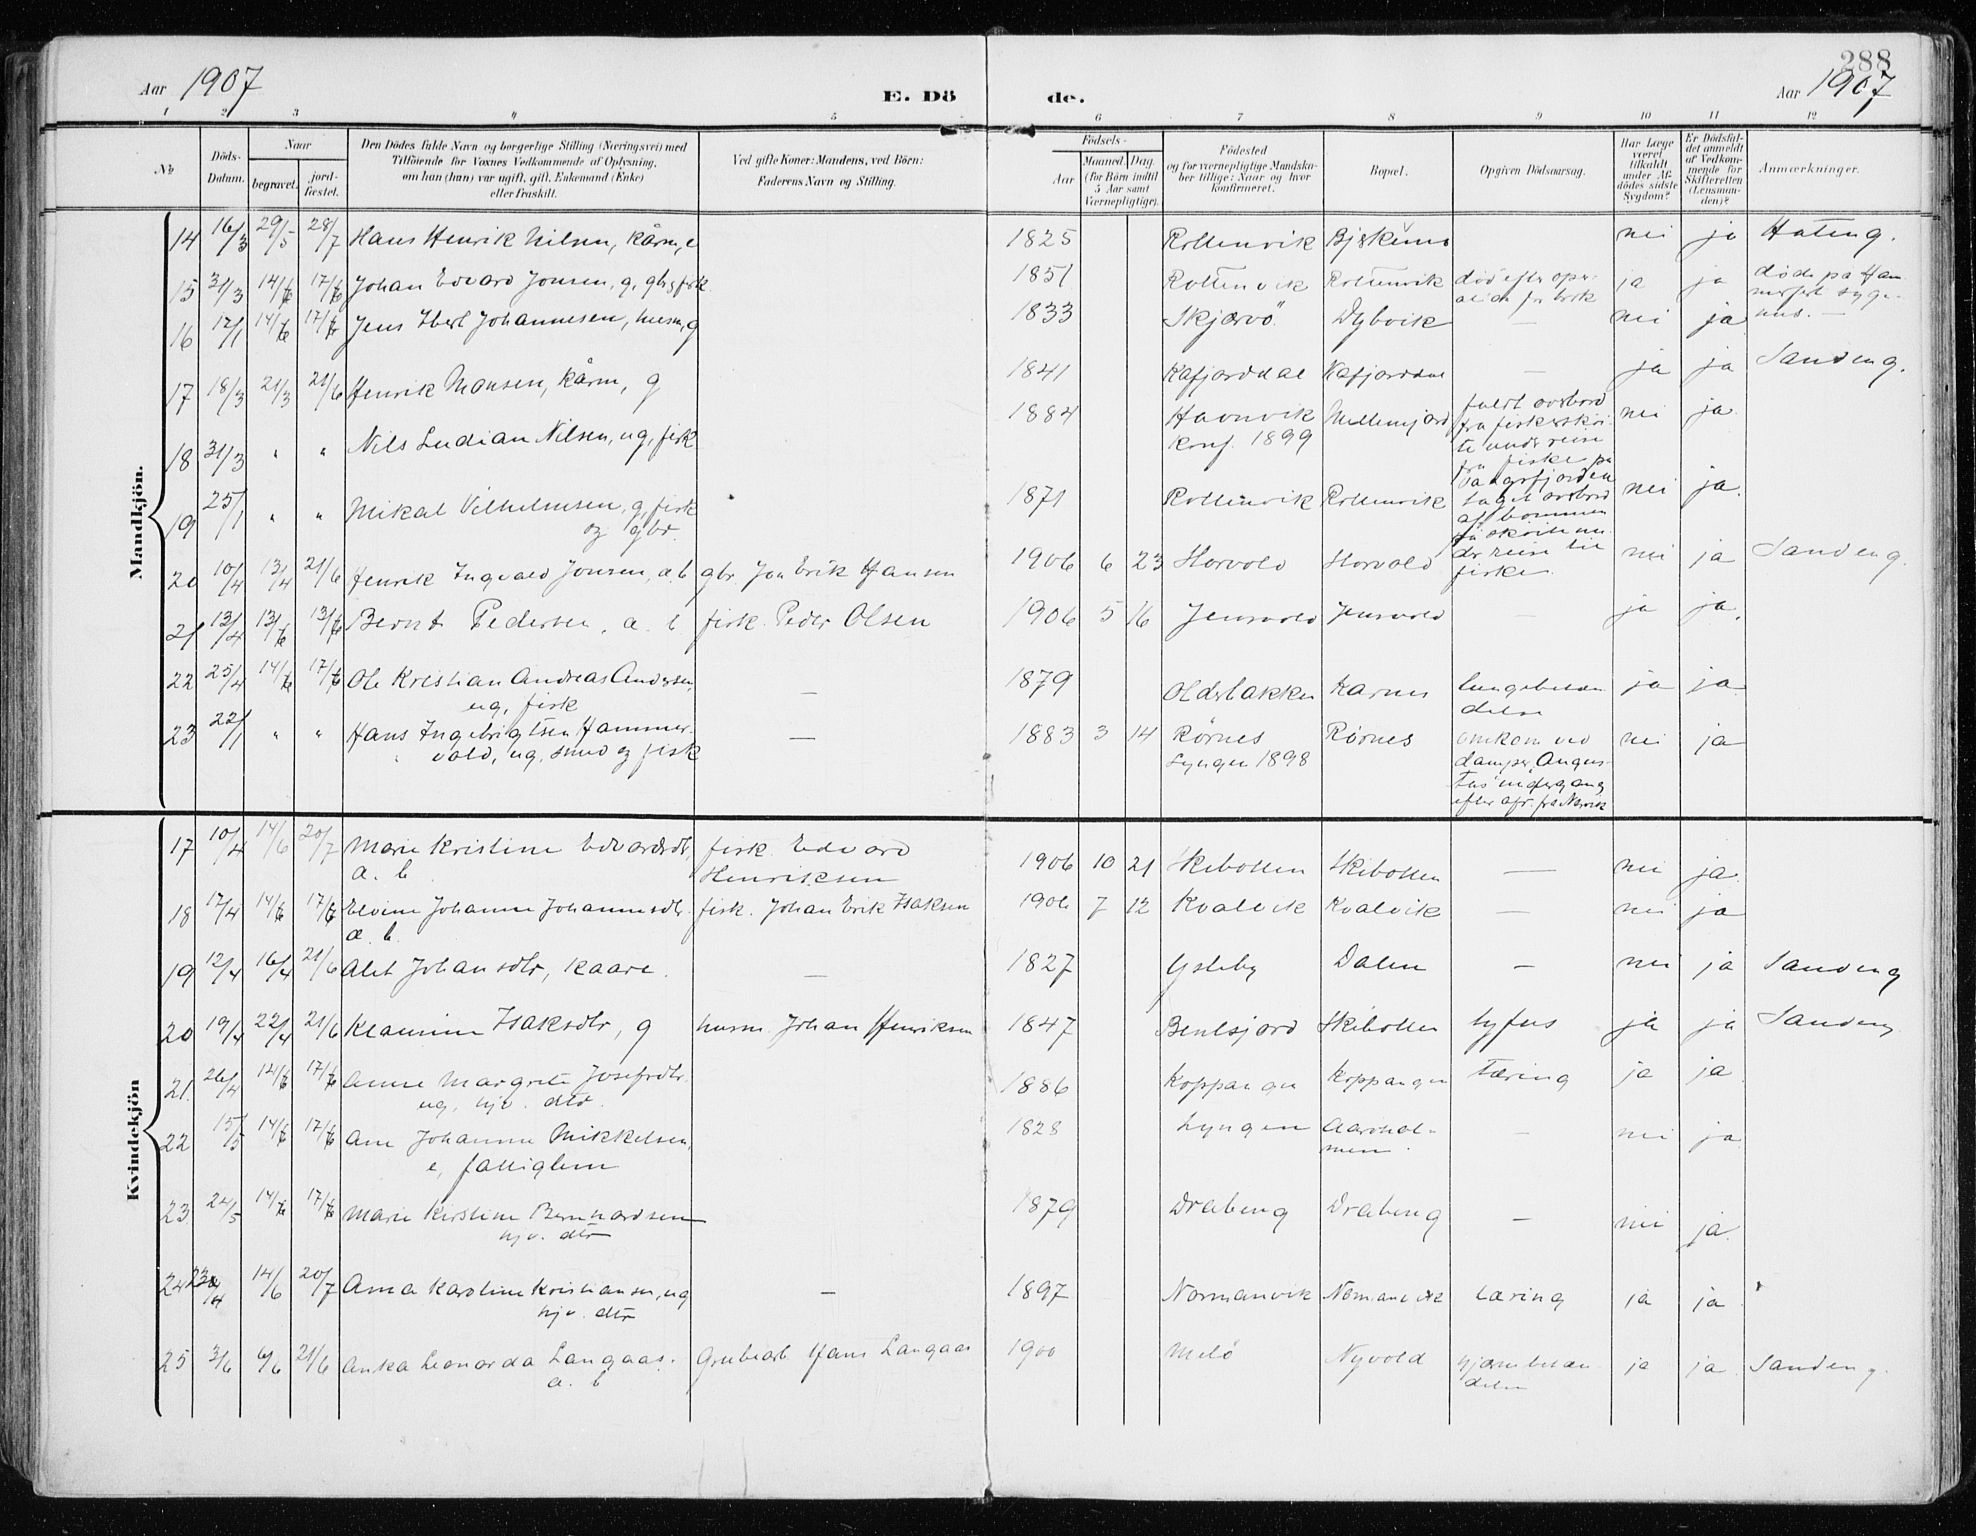 288
Aar 1907 E. Dö de. Aar 1907
1 2 3 4 5 6 7 8 9 10 11 12
No
Döds-Datum.
Naar
begravet.
jord-fæstet.
Den Dödes fulde Navn og borgerlige Stilling (Næringsvei) med
Tilföiende for Voxnes Vedkommende af Oplysning,
om han (hun) var ugift, gift, Enkemand (Enke)
eller fraskilt.
Ved gifte Koner: Mandens, ved Börn:
Faderens Navn og Stilling.
Födsels-
Aar
Maaned. Dag.
(for Börn indtil
5 Aar samt
Værnepligtige).
Födested
og for værnepligtige Mandska-
ber tillige: Naar og hvor
konfirmeret.
Bopæl.
Opgiven Dödsaarsag.
Har Læge
været
tilkaldt
under Af-
dödes sidste
Sygdom?
Er Dödsfal-
det anmeldt
af Vedkom-
mende for
Skifteretten
(Lensman-
den)?
Anmerkninger.
Mandkjön.
14 16/3 29/5 28/7 Hans Henrik Nilsen, kårm, e 1825 Rottenvik nei ja Hateng.
15 31/3 14/6 17/6 Johan Edvard Jonsen, g, gbr, fisk 1851 Rottenvik Rottenvik død efter oper-
ation for brok ja ja døde på Ham
merfest syge-
hus. —
16 12/1 14/6 17/6 Jens Johannesen, husm, g 1833 Skjærvö Dybvik — nei ja
17 18/3 21/3 21/6 Henrik Monsen, kårm, g 1841 Kafjorddal Kafjorddal — ja ja Sandeng.
18 31/3 " " Nils Ludian Nilsen, ug, fisk 1884 Havnvik
konf. 1899
faldt overbord
fra fiskerskøi-
te under reise
fra fiske på
nei ja
19 25/1 " " Mikal Vilhelmsen, g, fisk
og gbr.
1871 Rottenvik Rottenvik
taget overbord
af bommen
på skøite un-
der reise til
fiske.
nei ja.
20 10/4 13/4 21/6 Henrik Ingvald Jonsen, æ b gbr. Jon Erik Hansen 1906 6 23 Horvold Horvold nei ja Sandeng.
21 13/4 13/6 13/6 Bernt Pedersen, æ. b fisk. Peder Olsen 1906 5 16 Jensvold Jensvold — ja ja.
22 25/4 14/6 17/6 Ole Kristian Andreas Andersen,
ug, fisk
— 1879 Olderbakken Karnes lungebetæn
delse
ja ja
23 22/1 " " Hans Ingebrigtsen Hammer-
vold, ug, smed og fisk
— 1883 3 14 Rørnes
Lyngen 1898
Rørnes omkom ved
damper Augus-
tus' undergang
efter afr. fra Narvik
nei ja
Kvindekjön
17 10/4 14/6 20/7 Marie Kristine Edvardsdtr,
æ. b.
fisk. Edvard
Henriksen
1906 10 21 Skibotten Skibotten — nei ja.
18 17/4 14/6 17/6 Elvine Johanne Johannesdtr.
æ. b.
fisk. Johan Erik Isaksen 1906 7 12 Kvalvik Kvalvik — nei ja
19 12/4 16/4 21/6 Alet Johansdtr, kaare. — 1827 Dalen — nei ja Sandeng
20 19/4 22/4 21/6 Klaumine Isaksdtr, g husm. Johan Henriksen 1847 Bentsjord Skibotten tyfus ja ja Sandeng
21. 26/4 14/6 17/6 Anne Margrete Josefsdtr.
ug. hjv. dtr.
1886 Koppangen Koppangen tæring ja ja.
22 15/5 14/6 17/6 Ane Johanne Mikkelsen,
e, fattiglem
1828 Lyngen Aarohol-
men.
— nei ja
23 24/5 14/6 17/6 Marie Kirstine Bernhardsen
hjv. dtr
1879 Drabeng Drabeng — nei ja.
24 14/6 20/7 Anna Karoline Kristiansen, ug
hjv. dtr
— 1897 Normanvik Normanvik tæring ja ja.
25 3/6 6/6 21/6 Anka Leonarda Langaas.
æ. b
Grubearb Hans Langaas 1900 Melö Nyvold hjernebetæn-
delse
ja ja Sandeng.